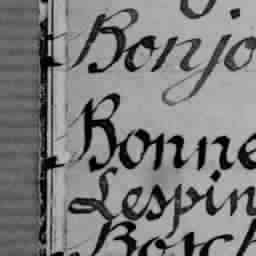 Bonjo
Bonne
Lespin
Bosch